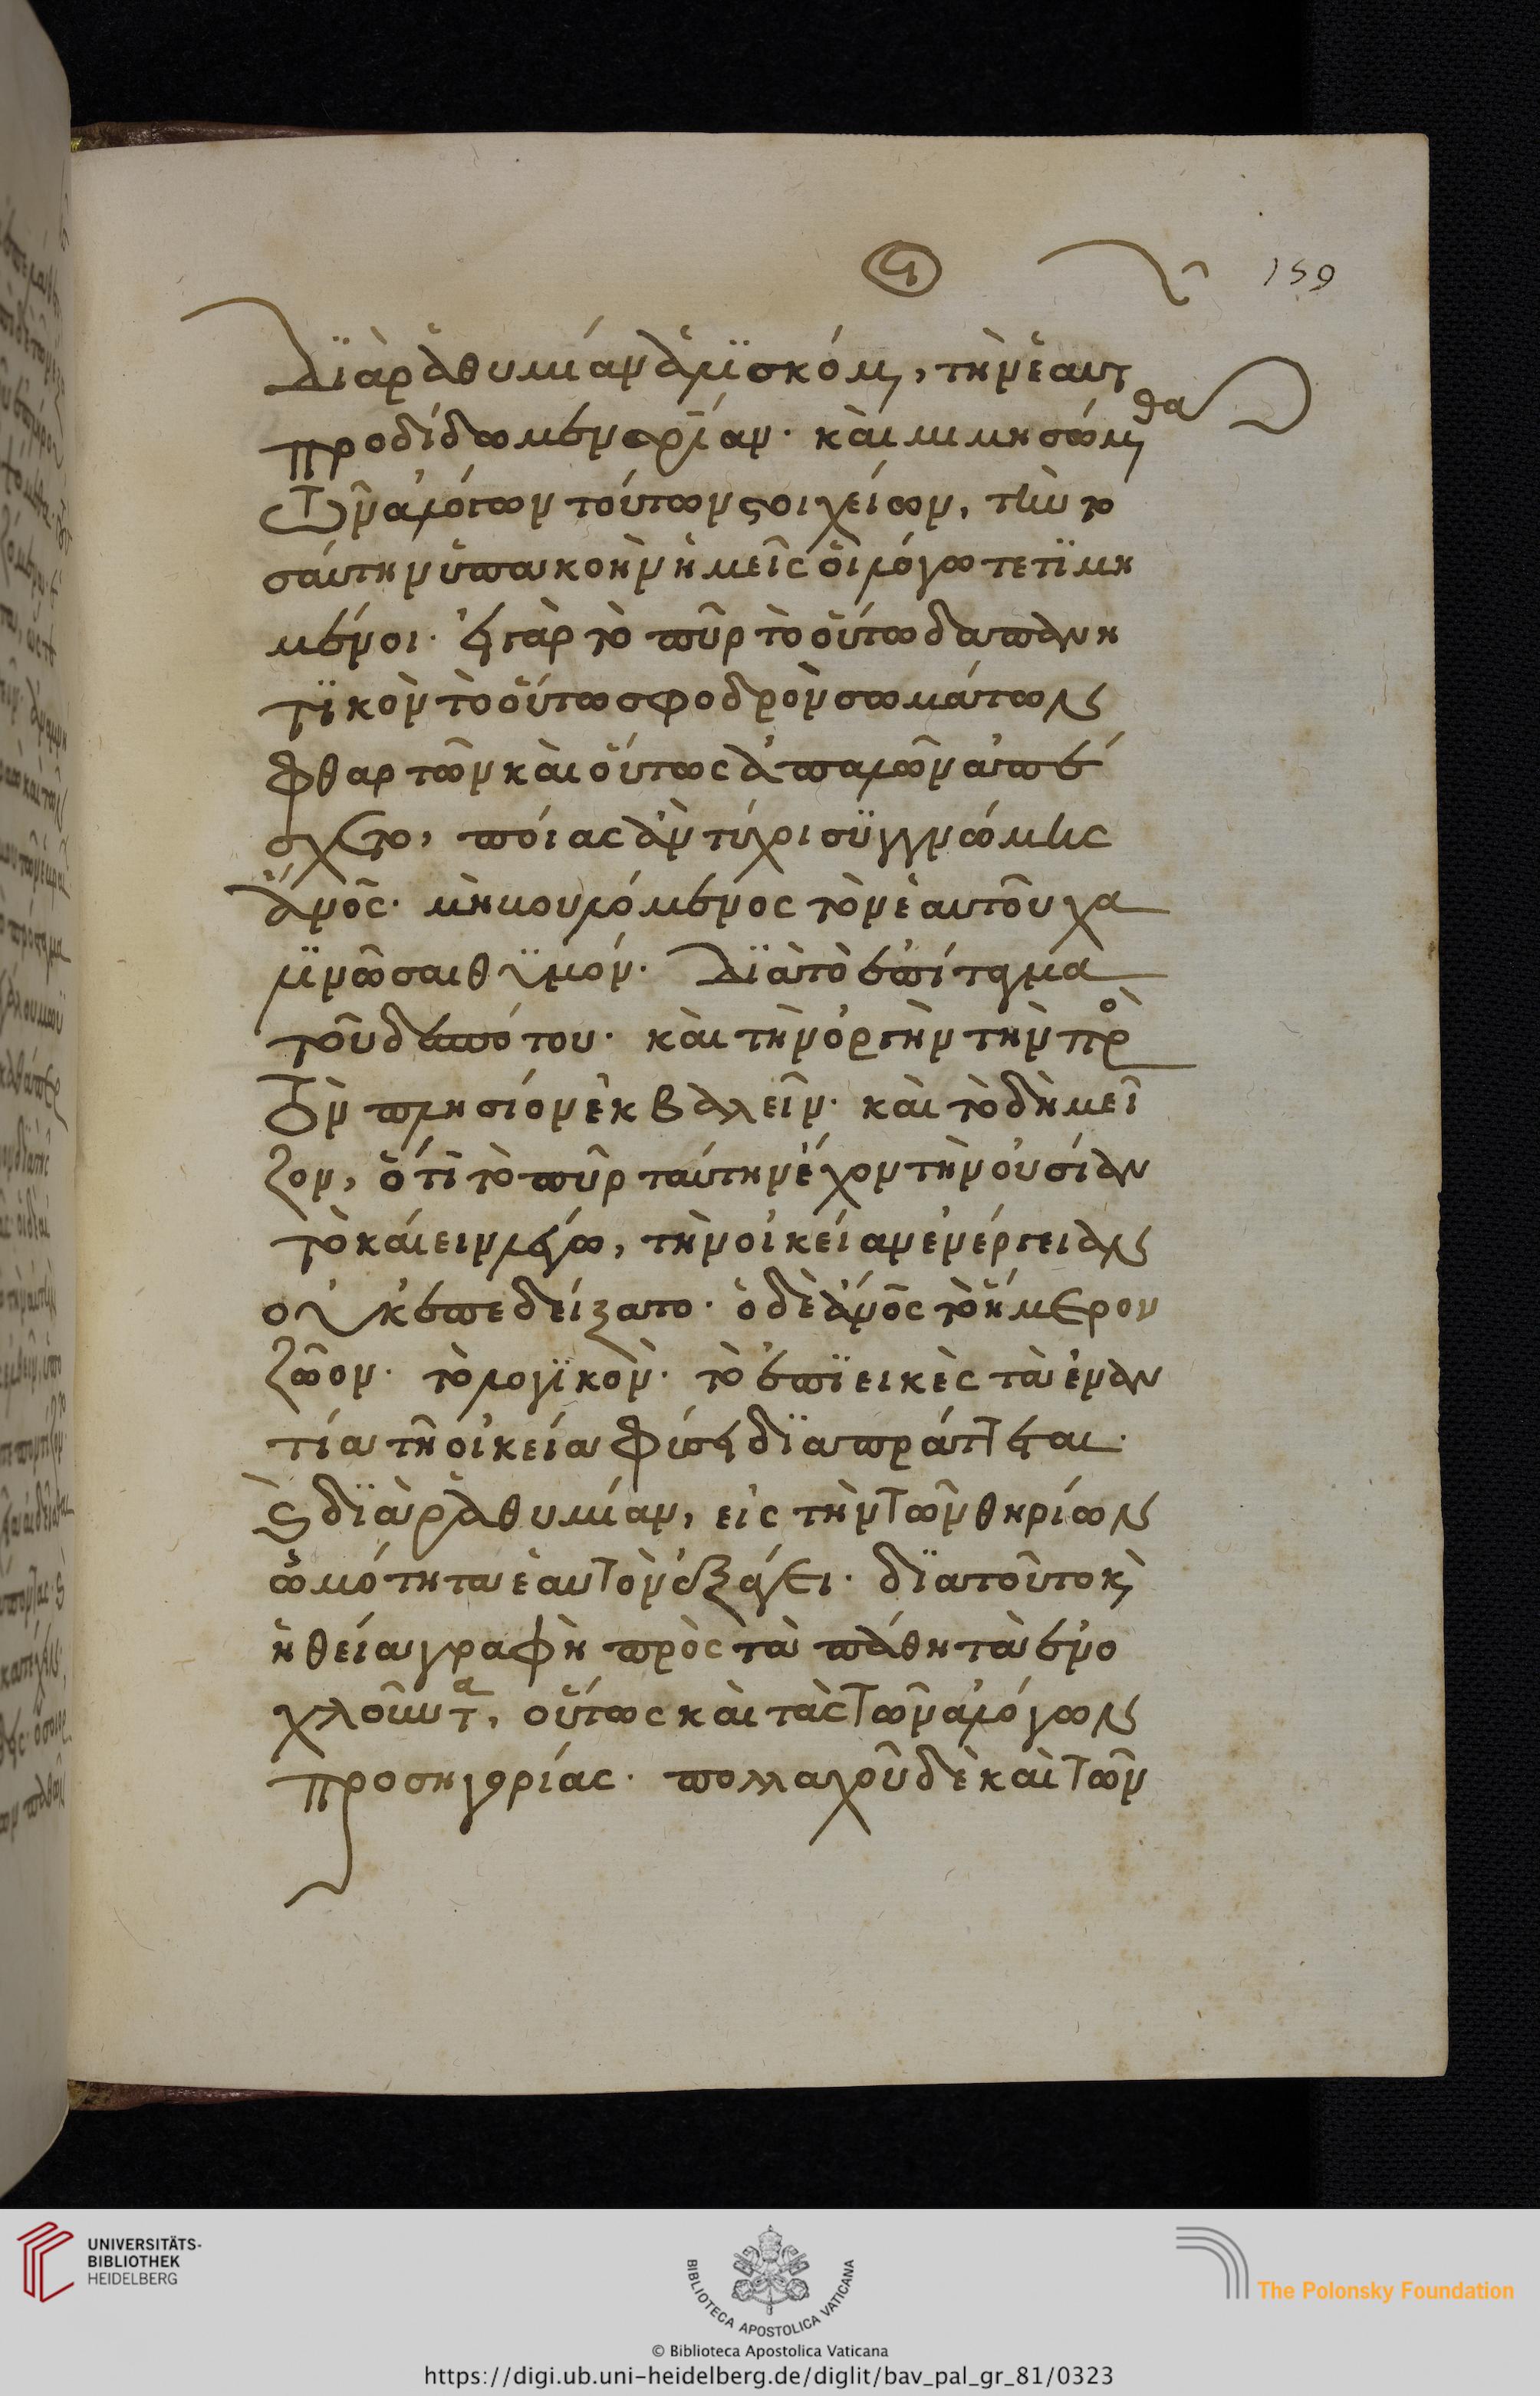 159
διὰ ῥαθυμίαν ἁλισκόμ, τὴν ἑαυτῶν
προδίδωμεν σρίαν. καὶ μιμησώμεθα
τῶν ἀλόγων τούτων στοιχείων, τὴν το
σαύτην ὑπακοὴν ἡμεῖς οἱ λόγω τετιμη
μένοι. εἰ γὰρ τὸ πῦρ τὸ οὕτω δαπανη
τικὸν τὸ οὕτω σφοδρὸν σωμάτων
φθαρτῶν καὶ οὕτως ἁπαλῶν ἀπέ
σχετο, ποίας ἂν τύχοι συγγνώμης
ἄνος. μὴ βουλόμενος τὸν ἑαυτοῦ χα
λινῶσαι θυμόν. διὰ τὸ ἐπίταγμα
τοῦ δεσπότου. καὶ τὴν ὀργὴν τὴν πρὸ
τὸν πλησίον ἐκβαλεῖν. καὶ τὸ δὴ μεῖ
ζον, ὅτι τὸ πῦρ ταύτην ἔχον τὴν οὐσίαν
τὸ καίειν λέγω, τὴν οἰκείαν ἐνέργειαν
οὐκ ἐπεδείξατο. ὁ δὲ ἄνος τὸ ἥμερον
ζῶον. τὸ λογικὸν. τὸ ἐπιεικὲς τὰ ἐναν
τία τῆ οἰκεία φύσει διαπράττεται.
καὶ διὰ ῥαθυμίαν, εἰς τὴν τῶν θηρίων
ὠμότητα ἑαυτὸν ἐξάγει. διατοῦτο καὶ
ἡ θεία γραφὴ πρὸς τὰ πάθη τὰ ἐνο
χλοῦντα, οὕτως καὶ τὰς τῶν ἀλόγων
προσηγορίας. πολλαχοῦ δὲ καὶ τῶν
UNIVERSITÄTS-
BIBLIOTHEK
HEIDELBERG
BIBLIOTECA APOSTOLICA VATICANA
The Polonsky Foundation
© Biblioteca Apostolica Vaticana
https://digi.ub.uni-heidelberg.de/diglit/bav_pal_gr_81/0323